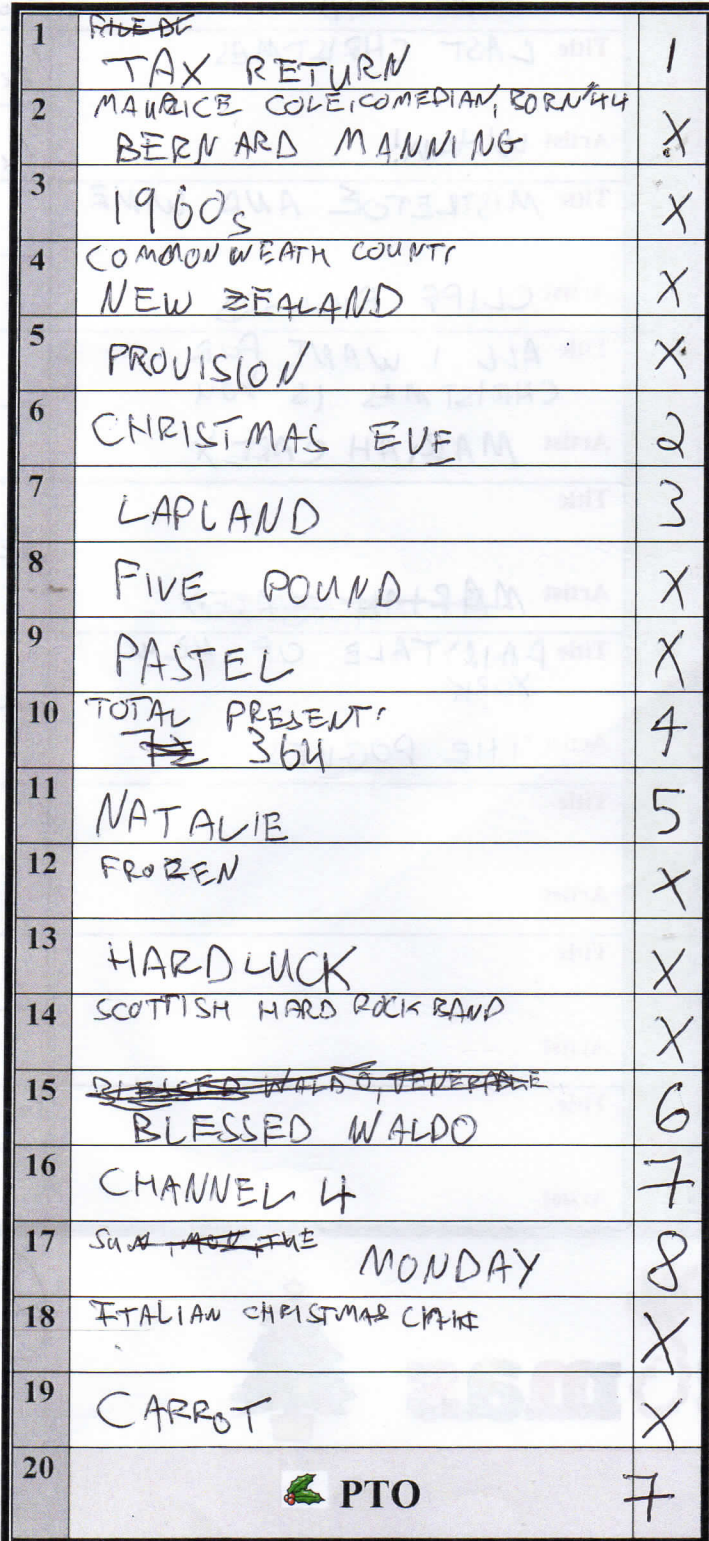 1 TAX RETURN 1
2 MAURICE COLE, COMEDIAN, BORN '44
BERNARD MANNING X
3 1960s X
4 COMMONWEATH COUNTY
NEW ZEALAND X
5 PROVISION X
6 CHRISTMAS EVE 2
7 LAPLAND 3
8 FIVE POUND X
9 PASTEL X
10 TOTAL PRESENTS
364 4
11 NATALIE 5
12 FROZEN X
13 HARD LUCK X
14 SCOTTISH HARD ROCK BAND X
15 BLESSED WALDO, VENERABLE
BLESSED WALDO 6
16 CHANNEL 4 7
17 SUN, MON, TUE MONDAY 8
18 ITALIAN CHRISTMAS X
19 CARROT X
20 PTO 7